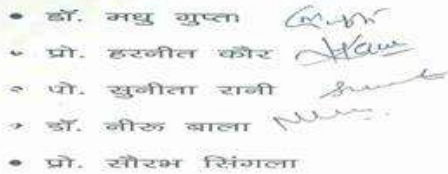 • डॉ. मधु गुप्ता
• प्रो. हरनीत कौर
• प्रो. सुनीता रानी
• डॉ. नीरू बाला
• प्रो. सौरभ सिंगला